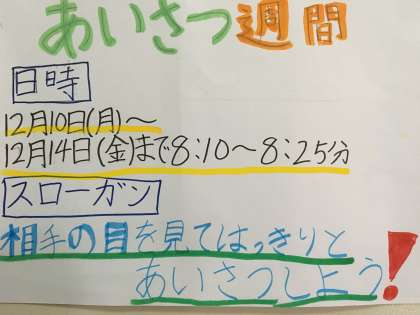 あいさつ週間
日時
12月10日(月)〜
12月14日(金)まで8:10〜8:25分
スローガン
相手の目を見てはっきりと
あいさつしよう!